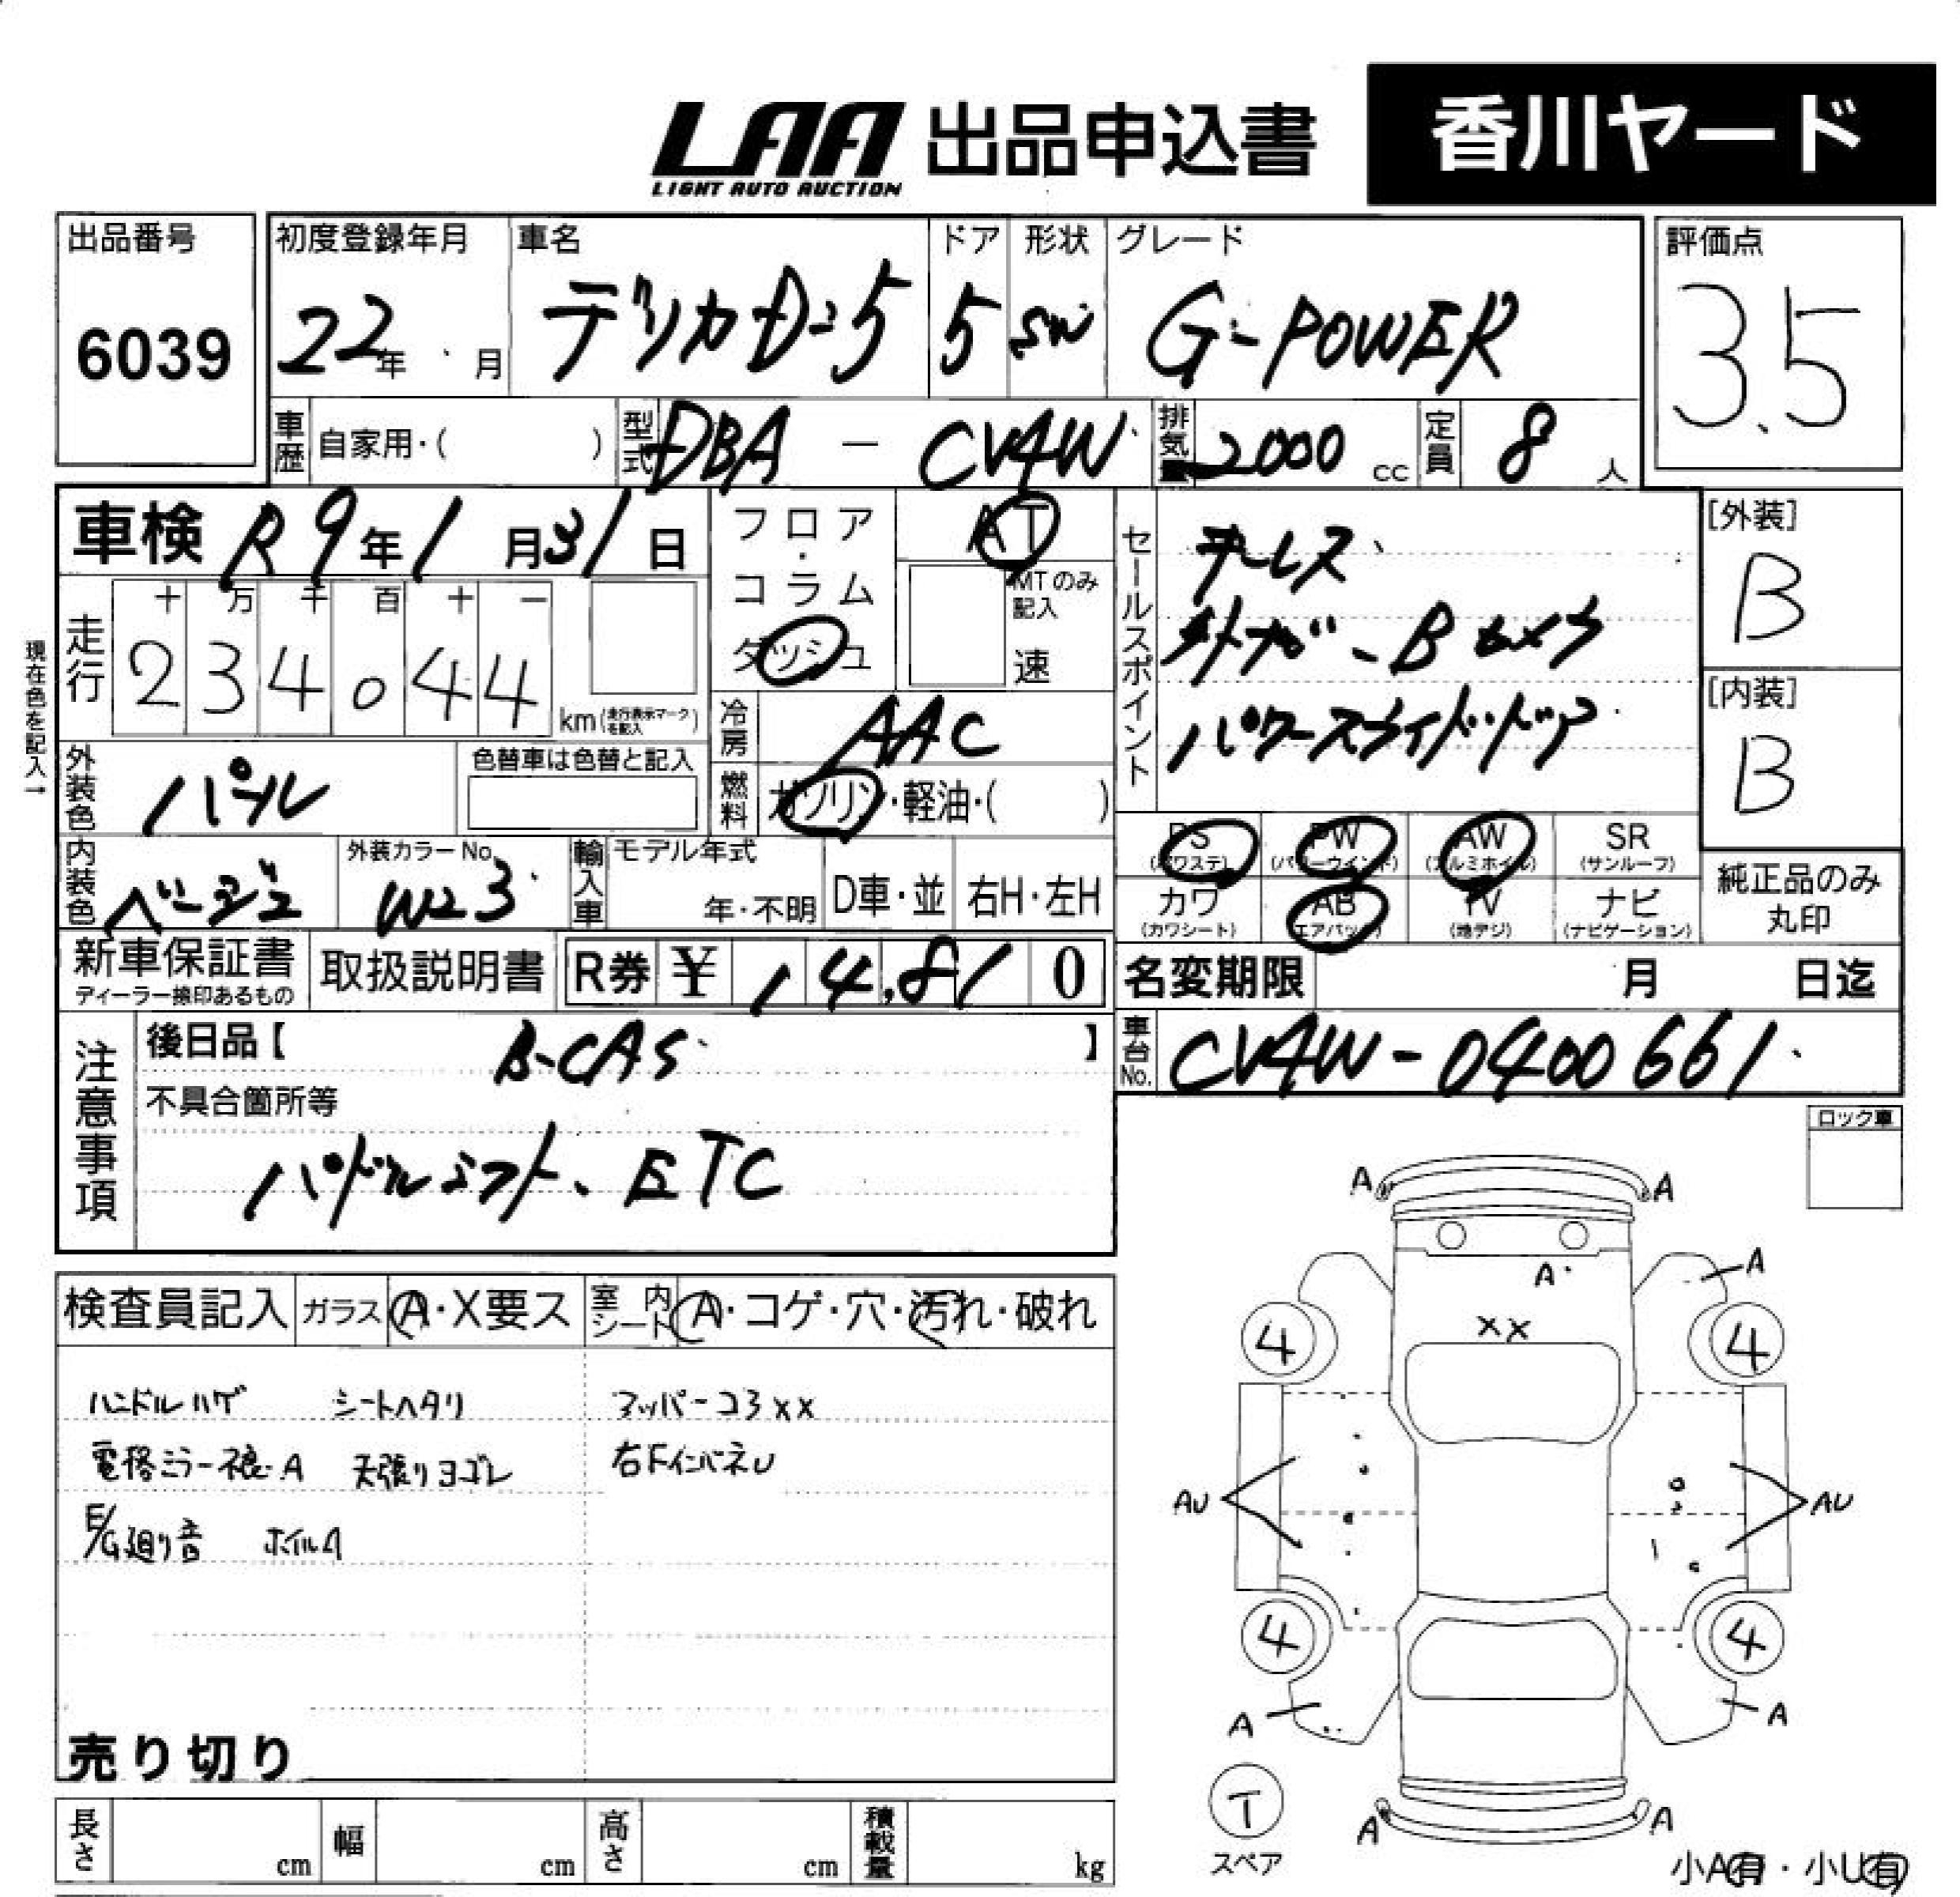 LAA 出品申込書 香川ヤード
LIGHT AUTO AUCTION
出品番号 初度登録年月 車名 ドア 形状 グレード 評価点
6039 22年 月 デリカD-5 5 SW G-POWER 3.5
車歴 自家用・( ) 型式 DBA - CV4W 排気量 2000 cc 定員 8 人
車検 R9年1月31日 フロア・コラム ダッシュ AT セールスポイント キーレス [外装]
MTのみ記入 速 外ナビ-Bカメラ B
走行 十 万 千 百 十 一
234044 km (走行表示マークを記入) パワースライドドア [内装]
現在色を記入→ 冷房 AAC B
外装色 パール 色替車は色替と記入 燃料 ガソリン・軽油・( )
PS (パワステ) PW (パワーウインド) AW (アルミホイル) SR (サンルーフ)
内装色 ベージュ 外装カラーNo. W23 輸入車 モデル年式 年・不明 D車・並 右H・左H
カワ (カワシート) AB (エアバック) TV (地デジ) ナビ (ナビゲーション) 純正品のみ丸印
新車保証書 ディーラー捺印あるもの 取扱説明書 R券 ¥ 14,810 名変期限 月 日迄
注意事項 後日品【 B-CAS 】 車台No. CV4W-0400661
不具合箇所等 ロック車
パドルシフト、ETC
検査員記入 ガラス A・X要ス 室内シート A・コゲ・穴・汚れ・破れ
ハンドルハゲ シートヘタリ アッパーコアXX
電格ミラー A 天張りヨゴレ 右FインパネU
E/G廻り音 ホイルA
売り切り
長さ cm 幅 cm 高さ cm 積載量 kg
A A
A A
XX
4 4
AU AU
4 4
A A
T
スペア
A A
小A有・小U有